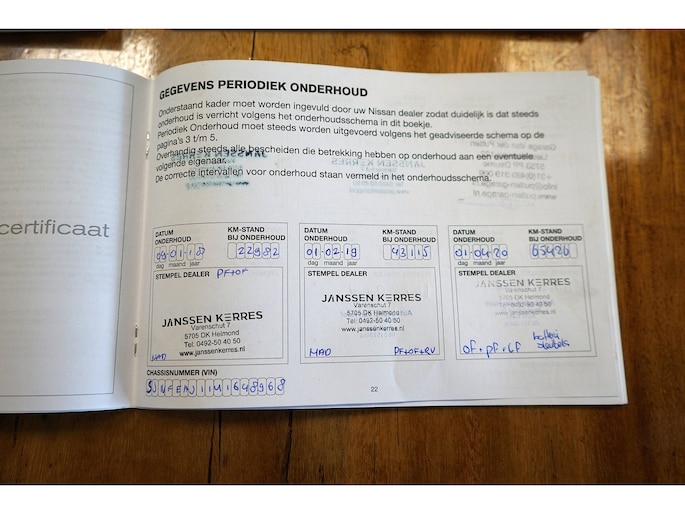 certificaat
GEGEVENS PERIODIEK ONDERHOUD
Onderstaand kader moet worden ingevuld door uw Nissan dealer zodat duidelijk is dat steeds
onderhoud is verricht volgens het onderhoudsschema in dit boekje.
Periodiek Onderhoud moet steeds worden uitgevoerd volgens het geadviseerde schema op de
pagina's 3 t/m 5.
Overhandig steeds alle bescheiden die betrekking hebben op onderhoud aan een eventuele
volgende eigenaar.
De correcte intervallen voor onderhoud staan vermeld in het onderhoudsschema.
DATUM ONDERHOUD
KM-STAND BIJ ONDERHOUD
09-01-18 22982
dag maand jaar
STEMPEL DEALER PF+OF
JANSSEN KERRES
Varenschut 7
5705 DK Helmond
Tel: 0492-50 40 50
www.janssenkerres.nl
MAD
DATUM ONDERHOUD
KM-STAND BIJ ONDERHOUD
01-02-19 43115
dag maand jaar
STEMPEL DEALER
JANSSEN KERRES
Varenschut 7
5705 DK Helmond
Tel: 0492-50 40 50
www.janssenkerres.nl
MAD PF+OF+RV
DATUM ONDERHOUD
KM-STAND BIJ ONDERHOUD
01-04-20 65426
dag maand jaar
STEMPEL DEALER
JANSSEN KERRES
Varenschut 7
5705 DK Helmond
Tel: 0492-50 40 50
www.janssenkerres.nl
CHASSISNUMMER (VIN)
22